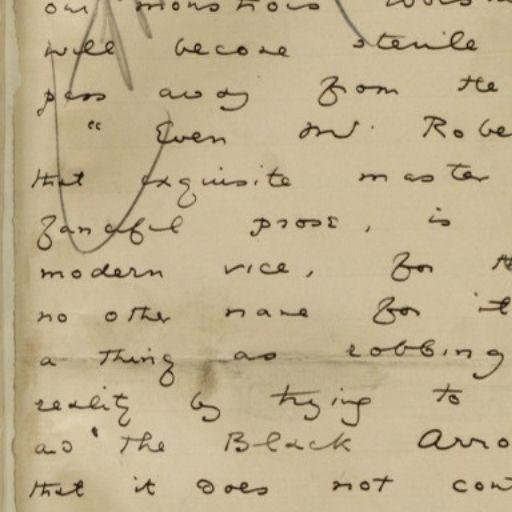 our monstrous wors
will become sterile
pass away from the
" Even Mr. Robe
that exquisite master
fanciful prose, is
modern vice, for th
no other name for it
a thing as robbing
reality by trying to
and 'The Black Arro
that it does not con